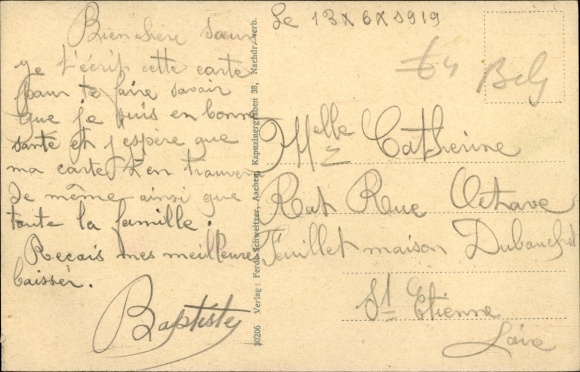 Le 13 X 6 X 1919
Bien chère sœur
je t'écrit cette carte
pour te faire savoir
que je suis en bonne
santé et j'espère que
ma carte t'en trouvera
de même ainsi que
toute la famille.
Reçais mes meilleures
baisser.
Baptiste
30206 Verlag: Ferd. Schweitzer, Aachen, Kapuzinergraben 38, Nachdr. verb.
Melle Catherine
Rat Rue Octave
Feuillet maison Dubanchet
St Etienne
Loire